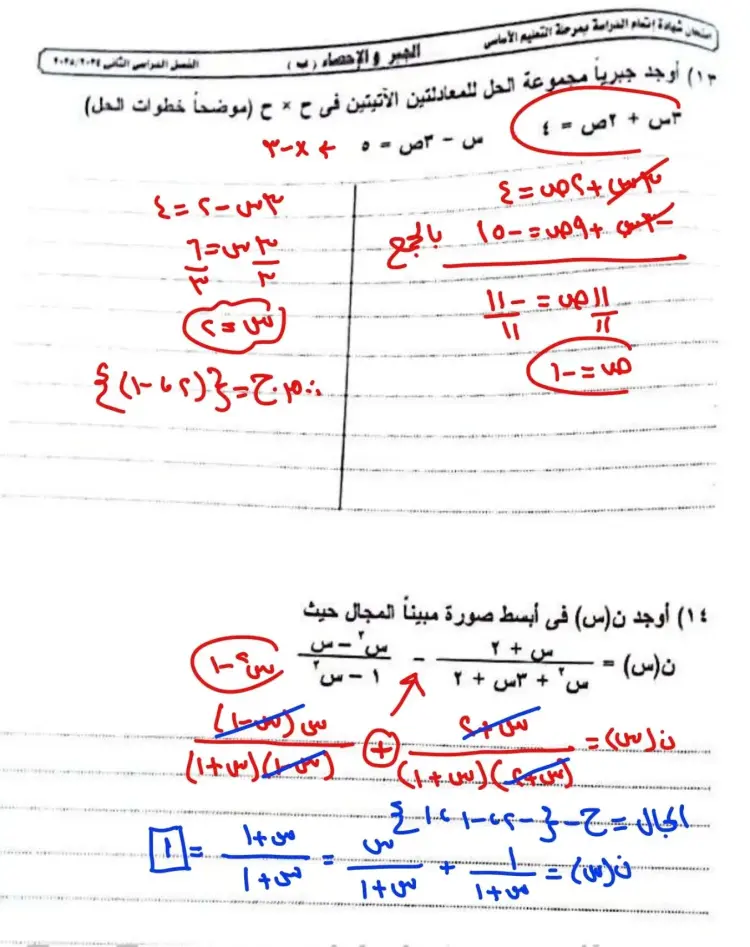 امتحان شهادة إتمام الدراسة بمرحلة التعليم الأساسى الجبر والإحصاء ( ب ) الفصل الدراسى الثانى ٢٠٢٥/٢٠٢٤
١٣) أوجد جبرياً مجموعة الحل للمعادلتين الآتيتين فى ح × ح (موضحاً خطوات الحل)
٣س + ٢ص = ٤
س - ٣ص = ٥ ← × -٣
٣س + ٢ص = ٤
-٣س + ٩ص = -١٥ بالجمع
١١ص / ١١ = -١١ / ١١
ص = -١
٣س - ٢ = ٤
٣س / ٣ = ٦ / ٣
س = ٢
∴ م.ح = {(٢، -١)}
١٤) أوجد ن(س) فى أبسط صورة مبيناً المجال حيث
ن(س) = (س + ٢) / (س² + ٣س + ٢) - (س² - س) / (١ - س²) س² - ١
ن(س) = (س + ٢) / (س + ٢)(س + ١) + س(س - ١) / (س - ١)(س + ١)
المجال = ح - {-٢، -١، ١}
ن(س) = ١ / (س + ١) + س / (س + ١) = (س + ١) / (س + ١) = ١